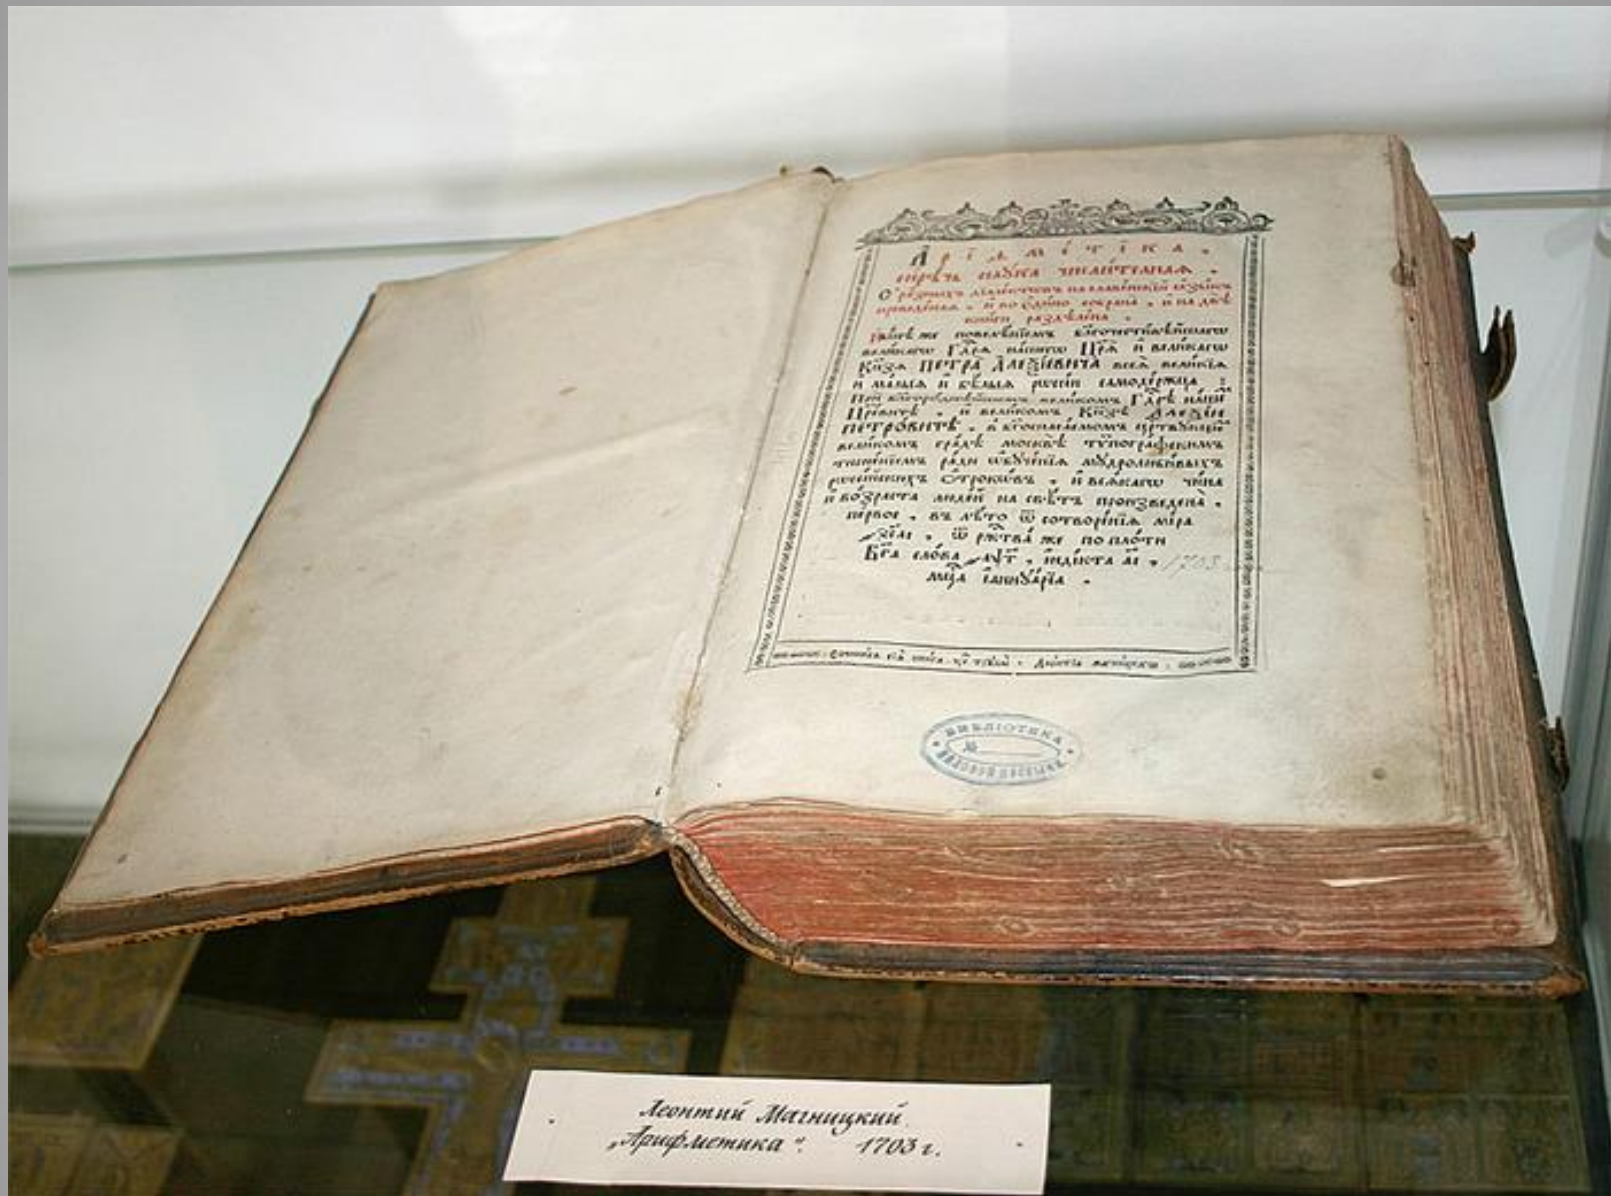 Аріѳме́тїка ,
сирѣчь наука числителная .
Ѻ ра́зныхъ дїале́ктѡвъ на славе́нскїй ѧзы́къ
преведе́наѧ , и҆ во є҆ди́но собрана̀ , и҆ на двѣ̀
кни́ги раздѣлена̀ .
Нн҃ѣ же повелѣ́нїемъ бл҃гочести́вѣйшагѡ
вели́кагѡ Гдⷭ҇рѧ на́шегѡ Цр҃ѧ̀ и҆ вели́кагѡ
Кн҃зѧ ПЕТРА̀ АЛЕѮІ́ЕВИЧА всеѧ̀ вели́кїѧ
и҆ ма́лыѧ и҆ бѣ́лыѧ рѡссі́и самоде́ржца :
Прѝ бл҃горо́днѣйшемъ вели́комъ Гдⷭ҇рѣ на́шемъ
Цр҃е́вичѣ , и҆ вели́комъ Кн҃зѣ АЛЕѮІ́И
ПЕТРО́ВИЧѢ , в бг҃оспаса́емомъ црⷭ҇твующемъ
вели́комъ гра́дѣ москвѣ̀ тѷпогра́фскимъ
тисне́нїемъ ра́ди ѡ҆буче́нїѧ мꙋдролюби́выхъ
рѡссі́йскихъ о҆трокѡ́въ , и҆ всѧ́кагѡ чи́на
и҆ во́зраста люде́й на свѣ́тъ произведена̀ ,
пе́рвое , въ лѣ́то ѿ сотворе́нїѧ мі́ра
҂зсаі , ѿ ржⷭ҇тва́ же по пло́ти
Бг҃а сло́ва ҂аѱг , індікта аі , 1703
мцⷭ҇а і҆аннꙋа́рїа .
Сочини́сѧ сїѧ̀ кни́га чрез трꙋды̀ Лео́нтїа магни́цкагѡ
БИБЛІОТЕКА
Леонтий Магницкий
„Арифметика“. 1703 г.